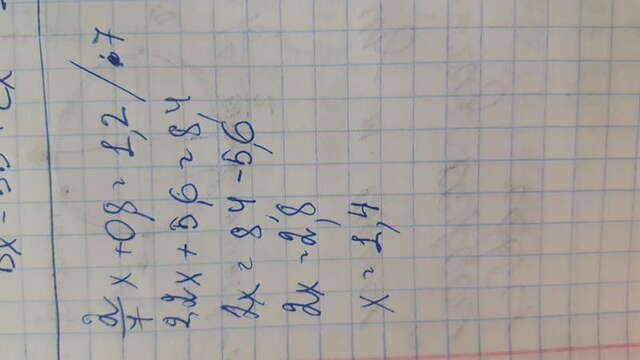 2/7 x + 0,8 = 1,2 / · 7
2,2x + 5,6 = 8,4
2x = 8,4 - 5,6
2x = 2,8
x = 1,4